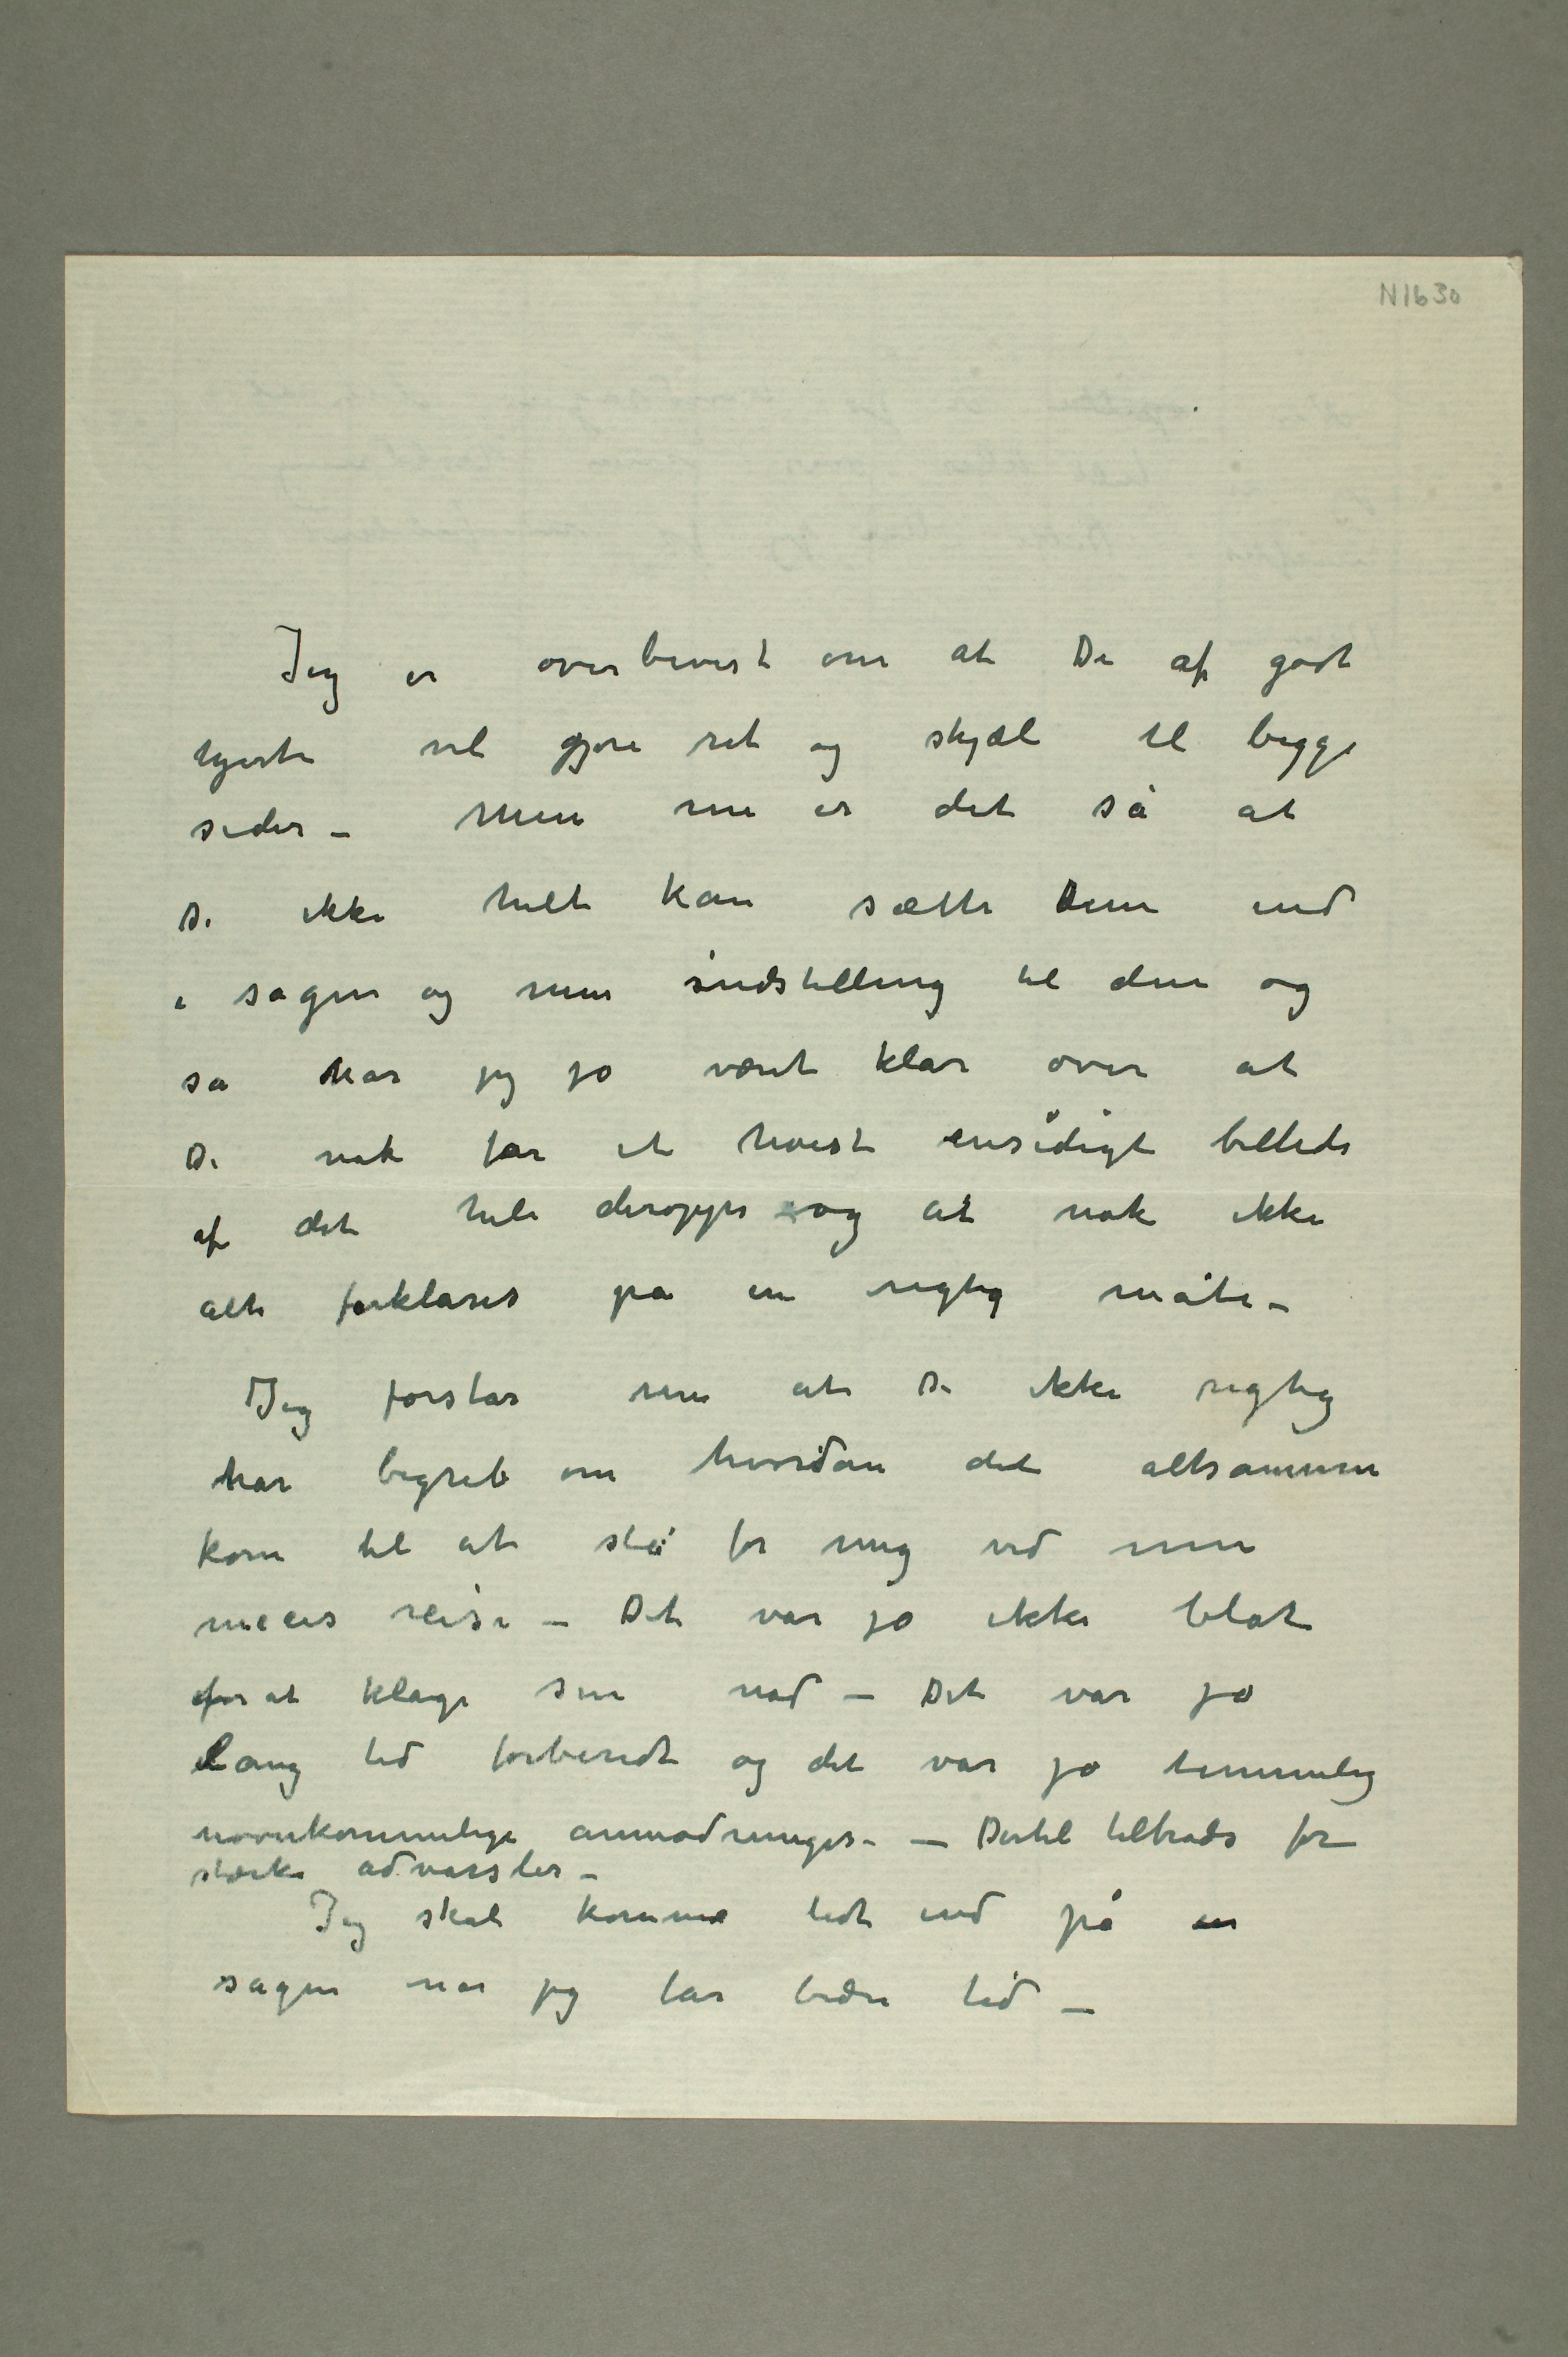 N1630
Jeg er overbevist om at De af godt
hjerte vil gjøre ret og skjæl til begge
sider – Men nu er det så at
De ikke helt kan sætte Dem ind
i sagen og min indstilling til den og
så har jeg jo været klar over at
De nok får et høist ensidigt billede
af det hele deroppe og at nok ikke
alt forklares på en rigtig måte –
Jeg forstår nu at De ikke rigtig
har begreb om hvordan det altsammen
kom til at stå for mig ved min
reise – Det var jo ikke blot
for at klage sin nød – Det var jo
lang tid forberedt og det var jo temmelig
anmodninger – Dertil tiltrods for
stærke advarsler –
Jeg skal komme lidt ind på
sagen når jeg får bedre tid –